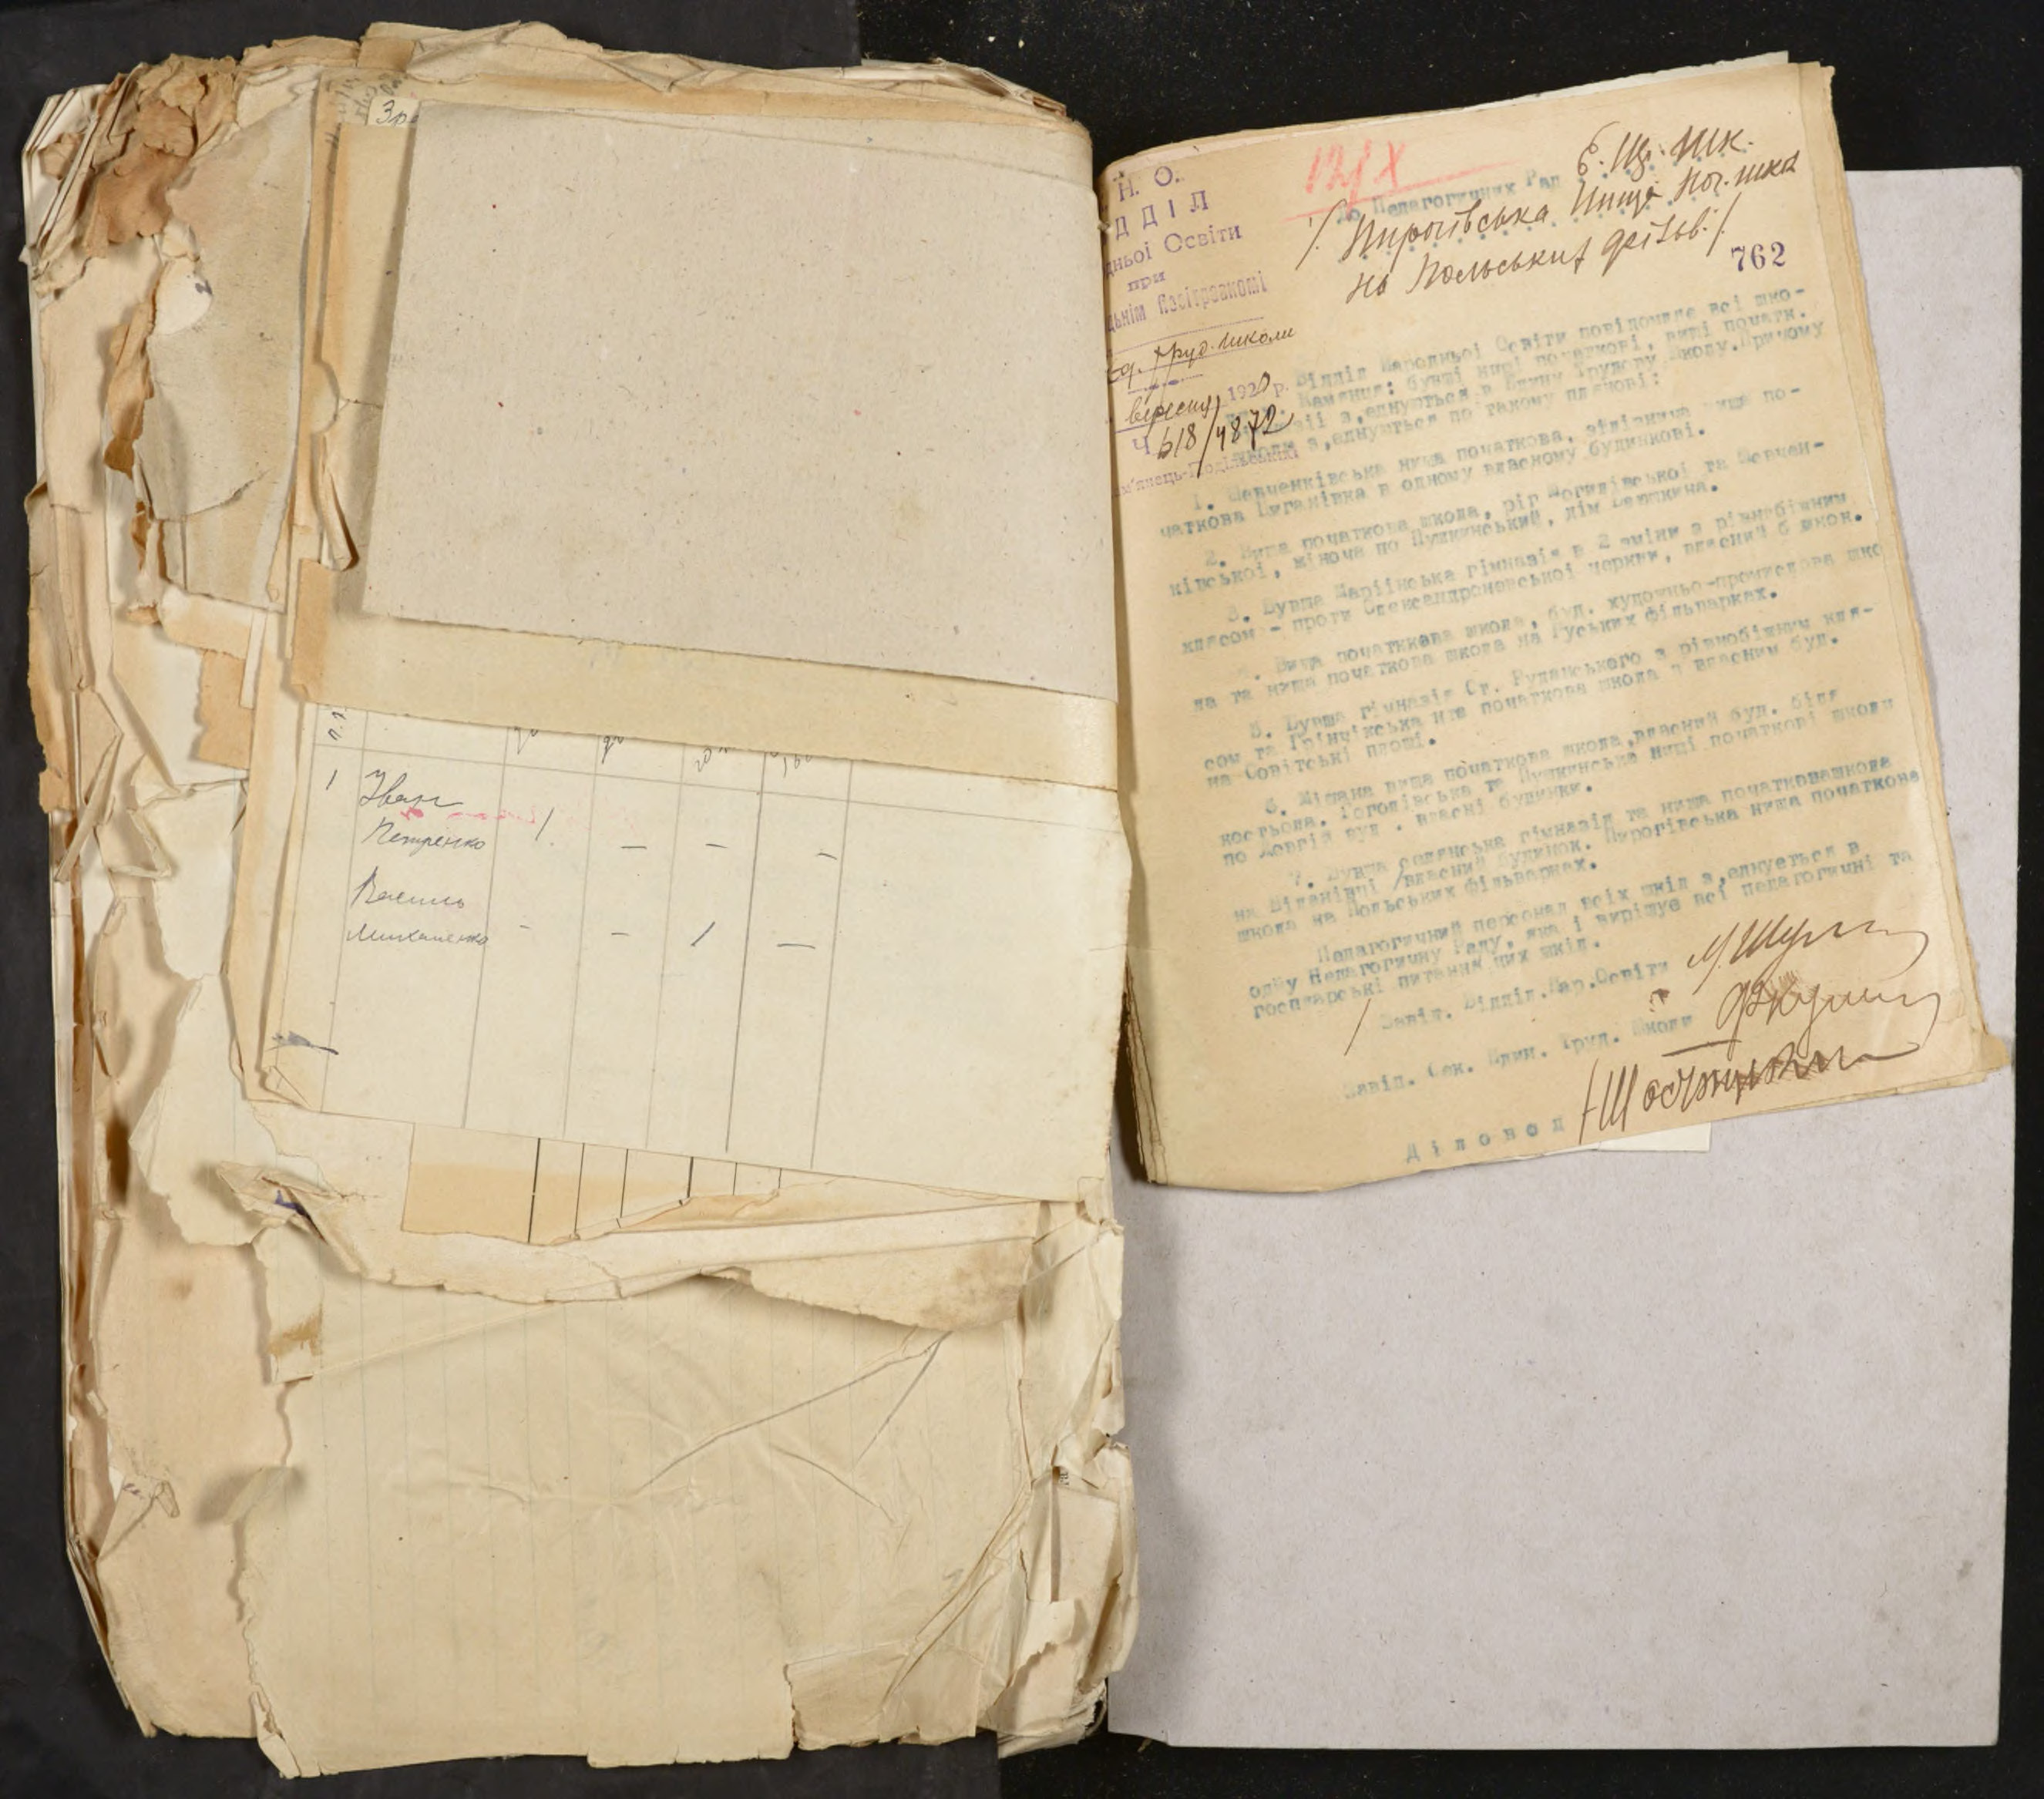 Зра
п.п.
1 Іван
Петренко 1. — — —
Василь
Михаленко - — 1 —
12/X
Н. О.
ДДІЛ
дньої Освіти
при
Повітревкомі
Єд. Труд. Школи
вересня 1920 р.
Ч 618/4872
м'янець-Подільський
До Педагогичних Рад Є. Шк.
/. Пирогівська Нища поч. шкл
на Польських фільв./
762
Відділ Народньої Освіти повідомляє всі шко-
Камянця: бувші нищі початкові, вищі початк.
гімназії з,єднуються в Єдину Трудову Школу. Причому
школи з,єднуються по такому плянові:
1. Шевченківська нища початкова, зілізнича вища по-
чаткова Циганівка в одному власному будинкові.
2. Вища початкова школа, ріг Могилівської та Шевчен-
ківської, жіноча по Пушкинський, дім
3. Бувша Маріїнська гімназія в 2 зміни з рівнобіжним
клясом - проти Олександроневської церкви, власний б
4. Вища початкова школа, буд. художньо-промислова шко
ла та нища початкова школа на Руських фільварках.
5. Бувша гімназія Ст. Руданського з рівнобіжним кля-
сом та Грінчівська нища початкова школа з власним буд.
на Совітські площі.
6. Мішана вища початкова школа, власний буд. біля
костьола. Гоголівська та Пушкинська нищі початкові школи
по Довгій вул. власні будинки.
7. Бувша селянська гімназія та нища початкова школа
на Біланівці /власний будинок. Пирогівська нища початкова
школа на Польських фільварках.
Педагогичний персонал всіх шкіл з,єднується в
одну Педагогичну Раду, яка і вирішує всі педагогичні та
господарські питання цих шкіл.
Завід. Відділ. Нар. Освіти
Завід. Сек. Един. Труд. Школи
Діловод